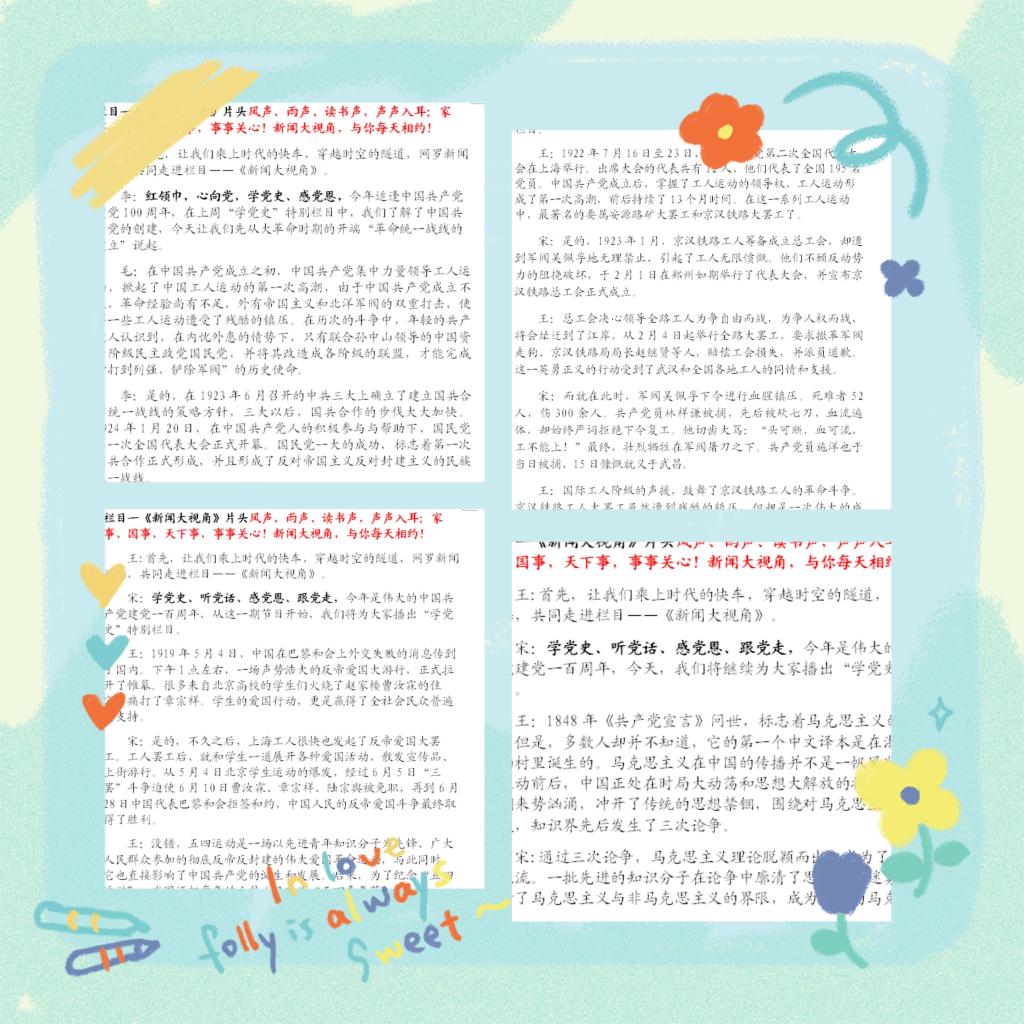 目一 片头风声、雨声、读书声，声声入耳；家
事，事事关心！新闻大视角，与你每天相约！
，让我们乘上时代的快车，穿越时空的隧道，网罗新闻
共同走进栏目——《新闻大视角》。
李：红领巾，心向党，学党史、感党恩，今年适逢中国共产党
党 100 周年，在上周“学党史”特别栏目中，我们了解了中国共
党的创建，今天让我们先从大革命时期的开端“革命统一战线的
立”说起。
毛：在中国共产党成立之初，中国共产党集中力量领导工人运
，掀起了中国工人运动的第一次高潮，由于中国共产党成立不
，革命经验尚有不足，外有帝国主义和北洋军阀的双重打击，使
一些工人运动遭受了残酷的镇压。在历次的斗争中，年轻的共产
人认识到，在内忧外患的情势下，只有联合孙中山领导的中国资
阶级民主政党国民党，并将其改造成各阶级的联盟，才能完成
打到列强，铲除军阀”的历史使命。
李：是的，在 1923 年 6 月召开的中共三大上确立了建立国共合
统一战线的策略方针，三大以后，国共合作的步伐大大加快。
924 年 1 月 20 日，在中国共产党人的积极参与与帮助下，国民党
一次全国代表大会正式开幕。国民党一大的成功，标志着第一次
共合作正式形成，并且形成了反对帝国主义反对封建主义的民族
一战线
栏目。
王：1922 年 7 月 16 日至 23 日， 党第二次全国代 大
会在上海举行。出席大会的代表共有 12 人，他们代表了全国 195 名
党员。中国共产党成立后，掌握了工人运动的领导权，工人运动形
成了第一次高潮，前后持续了 13 个月时间。在这一系列工人运动
中，最著名的要属安源路矿大罢工和京汉铁路大罢工了。
宋：是的，1923 年 1 月，京汉铁路工人筹备成立总工会，却遭
到军阀吴佩孚地无理禁止，引起了工人无限愤慨。他们不顾反动势
力的阻挠破坏，于 2 月 1 日在郑州如期举行了代表大会，并宣布京
汉铁路总工会正式成立。
王：总工会决心领导全路工人为争自由而战，为争人权而战，
将会址迁到了江岸，从 2 月 4 日起举行全路大罢工，要求撤革军阀
走狗，京汉铁路局局长赵继贤等人，赔偿工会损失，并派员道歉。
这一英勇正义的行动受到了武汉和全国各地工人的同情和支援。
宋：而就在此时，军阀吴佩孚下令进行血腥镇压。死难者 52
人，伤 300 余人。共产党员林祥谦被捕，先后被砍七刀，血流遍
体，却始终严词拒绝下令复工。他切齿大骂：“头可断，血可流，
工不能上！”最终，壮烈牺牲在军阀屠刀之下。共产党员施洋也于
当日被捕，15 日慷慨就义于武昌。
王：国际工人阶级的声援，鼓舞了京汉铁路工人的革命斗争。
京汉铁路工人大罢工虽然遭到残酷的镇压，但却是一次伟大的成
栏目一《新闻大视角》片头风声、雨声、读书声，声声入耳；家
事、国事，天下事，事事关心！新闻大视角，与你每天相约！
王:首先，让我们乘上时代的快车，穿越时空的隧道，网罗新闻
，共同走进栏目——《新闻大视角》。
宋：学党史、听党话、感党恩、跟党走，今年是伟大的中国共
产党建党一百周年，从这一期节目开始，我们将为大家播出“学党
史”特别栏目。
王：1919 年 5 月 4 日，中国在巴黎和会上外交失败的消息传到
了国内。下午 1 点左右，一场声势浩大的反帝爱国大游行，正式拉
开了帷幕。很多来自北京高校的学生们火烧了赵家楼曹汝霖的住
痛打了章宗祥。学生的爱国行动，更是赢得了全社会民众普遍
支持。
宋：是的，不久之后，上海工人很快也发起了反帝爱国大罢
工。工人罢工后，就和学生一道展开各种爱国活动，散发宣传品、
上街游行。从 5 月 4 日北京学生运动的爆发，经过 6 月 5 日“三
罢”斗争迫使 6 月 10 日曹汝霖、章宗祥、陆宗舆被免职，再到 6 月
28 日中国代表巴黎和会拒签和约，中国人民的反帝爱国斗争最终取
得了胜利。
王：没错，五四运动是一场以先进青年知识分子为先锋、广大
人民群众参加的彻底反帝反封建的伟大爱国革命运动，与此同时，
它也直接影响了中国共产党的诞生和发展。后来，为了纪念“五四
《新闻大视角》片头风声、雨声、读书声，声声入耳
国事，天下事，事事关心！新闻大视角，与你每天相约
王:首先，让我们乘上时代的快车，穿越时空的隧道，
，共同走进栏目——《新闻大视角》。
宋：学党史、听党话、感党恩、跟党走，今年是伟大的
建党一百周年，今天，我们将继续为大家播出“学党史
。
王：1848 年《共产党宣言》问世，标志着马克思主义的
但是，多数人却并不知道，它的第一个中文译本是在浙
村里诞生的。马克思主义在中国的传播并不是一帆风
动前后，中国正处在时局大动荡和思想大解放的
来势汹涌，冲开了传统的思想禁锢，围绕对马克思主
，知识界先后发生了三次论争。
宋:通过三次论争，马克思主义理论脱颖而出，成为了
流。一批先进的知识分子在论争中廓清了思 迷
了马克思主义与非马克思主义的界限，成为 马克
In love
folly is always
sweet ~